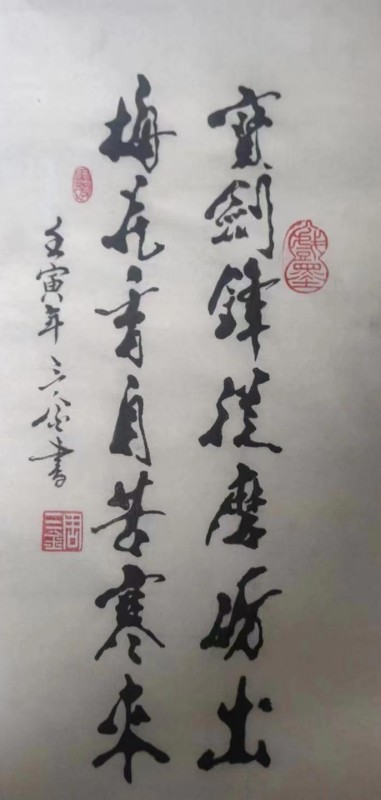 寶劍鋒從磨礪出
梅花香自苦寒來
壬寅年三金書